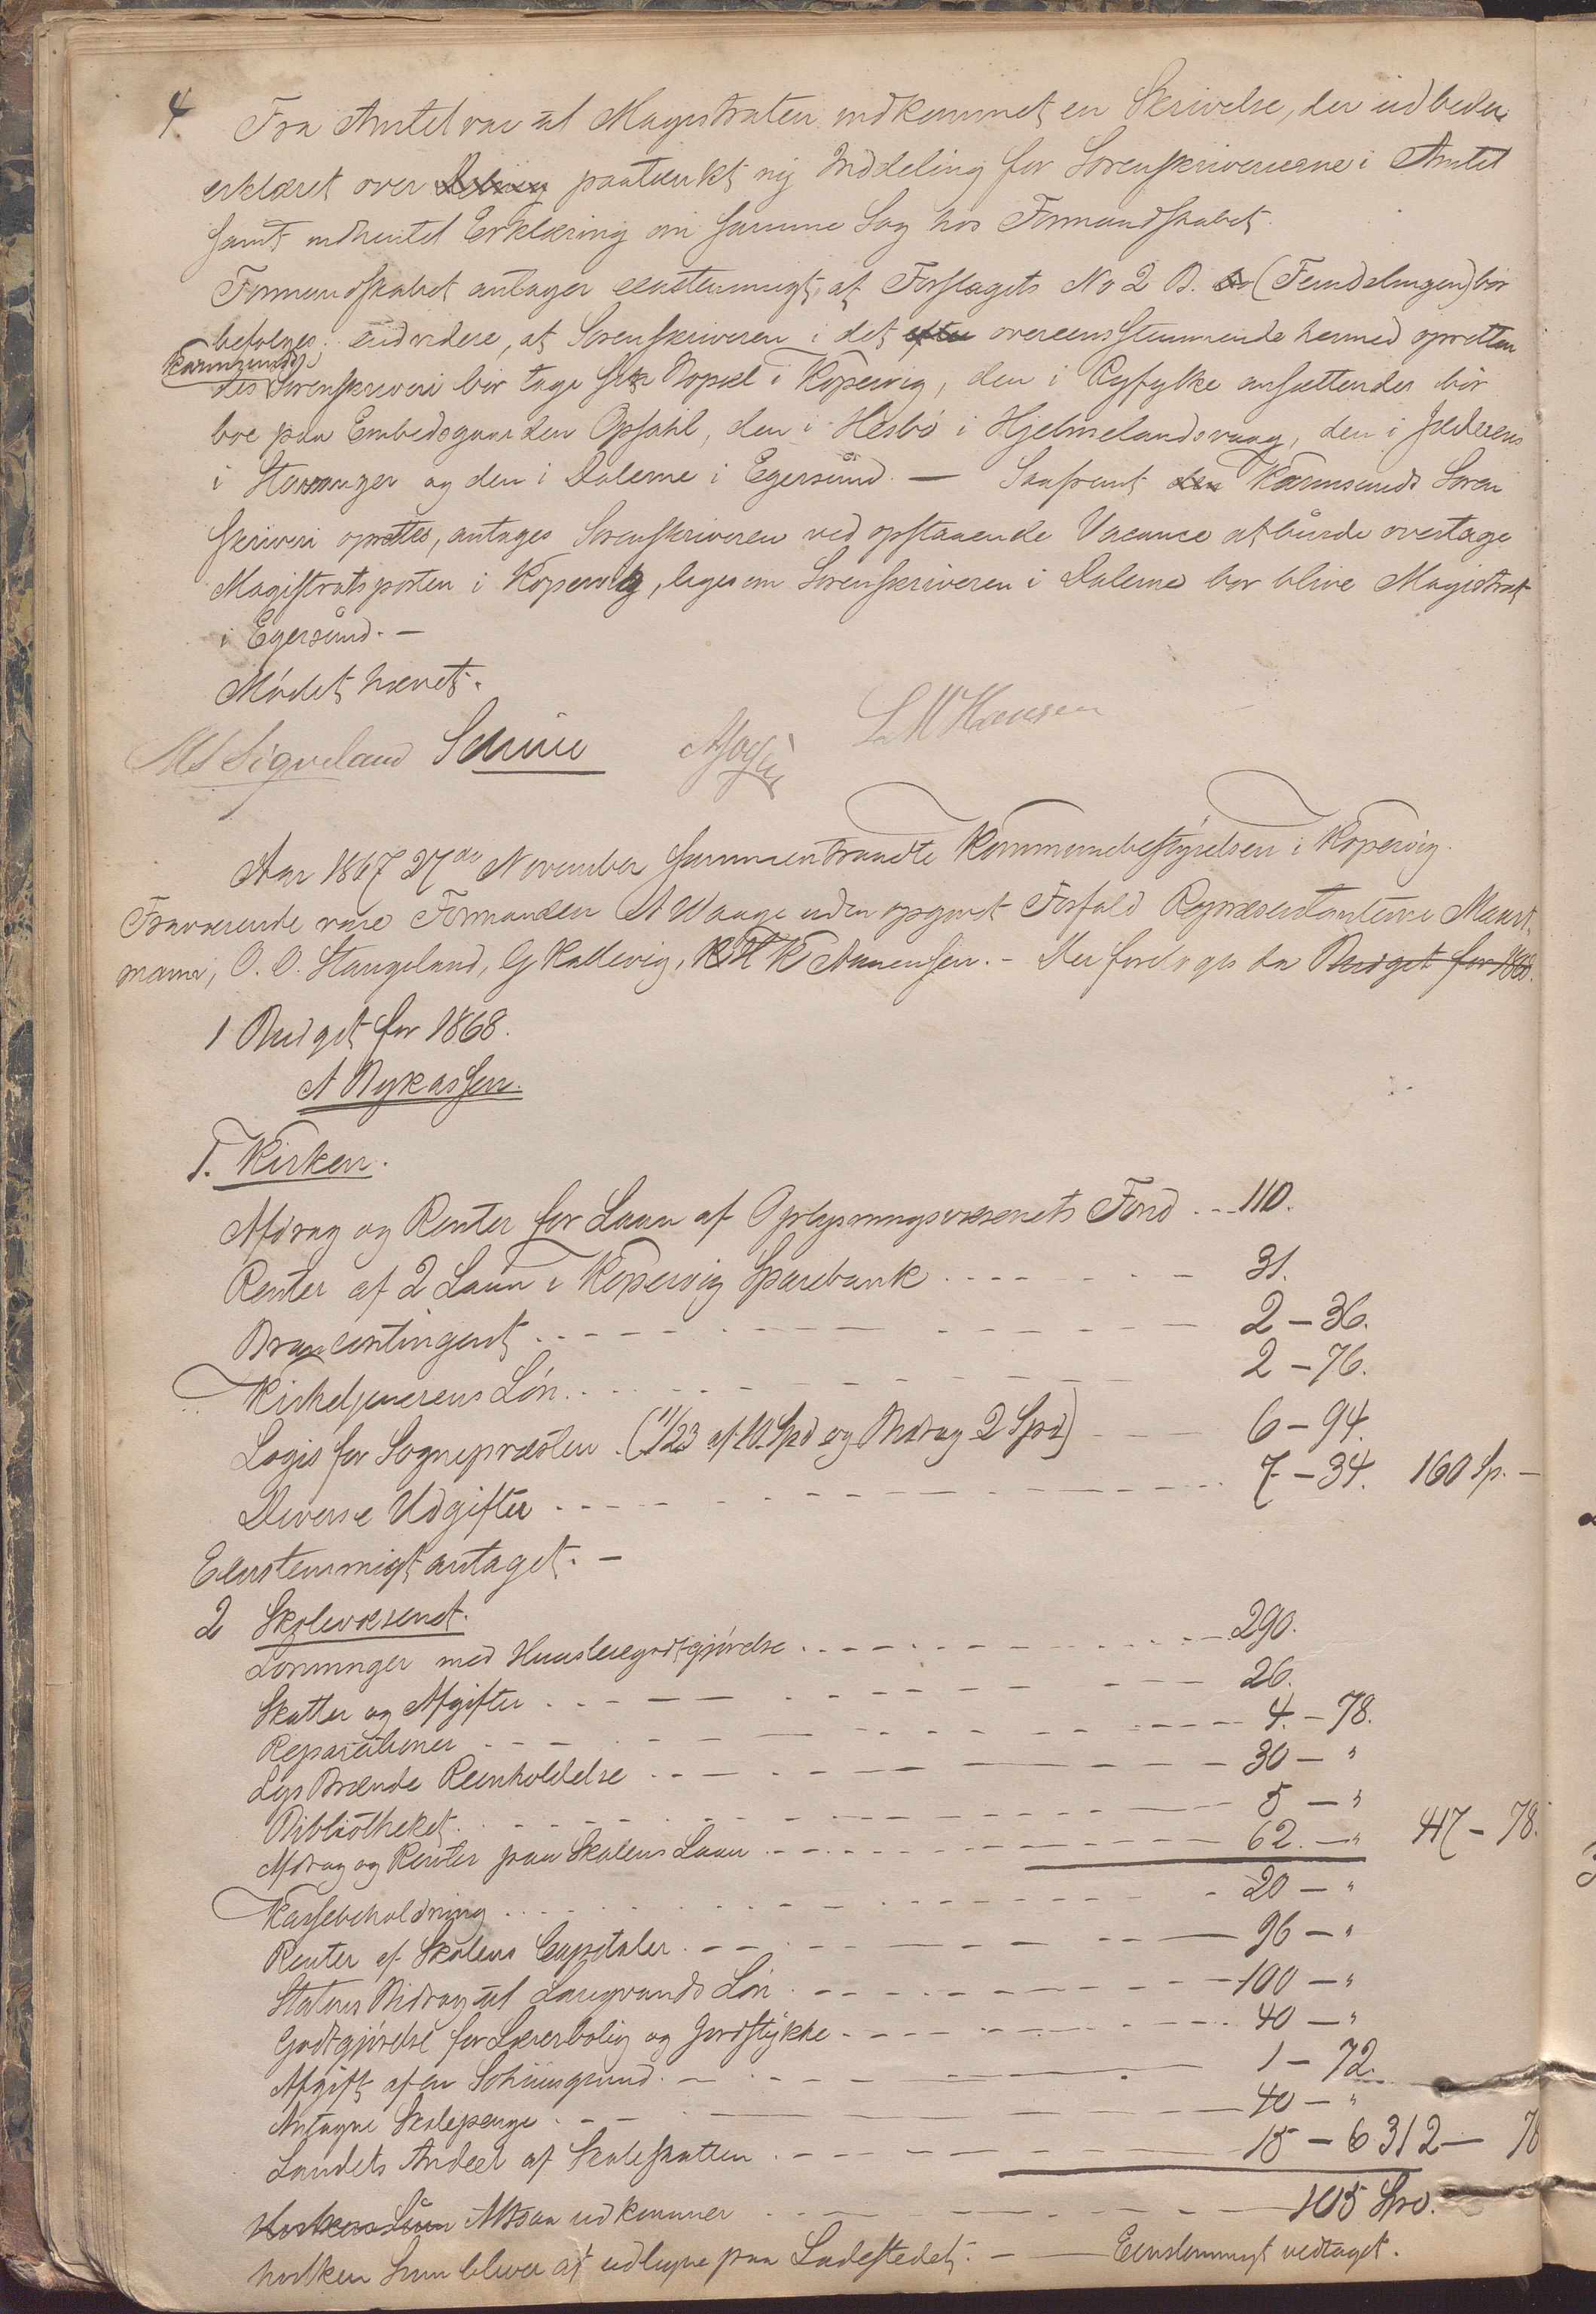 4 Fra Amtet var til Magistraten indkommet en Skrivelse, der udbeder
erklæret over paatænkt ny Inddeling for Sorenskriverierne i Amtet
samt indhentet Erklæring om samme Sag hos Formandskabet.
Formandskabet antager eenstemmigt, at Forslagets No 2 B. (Femdelingen) bør
befølges; endvidere, at Sorenskriveren i det overeensstemmende hermed opretten
Karmsunds
des Sorenskriveri bør tage sin Bopæl i Kopervig, den i Ryfylke ansættendes bør
boe paa Embedsgaarden Opsahl, den i Hesbö i Hjelmelandsvaag, den i Jædderens
i Stavanger og den i Dalerne i Egersund. — Saafremt Karmsunds Soren
skriveri oprettes, antages Sorenskriveren ved opstaaende Vacance at burde overtage
Magistratsposten i Kopervig, ligesom Sorenskriveren i Dalerne bør blive Magistrat
i Egersund. —
Mödet hævet.
Sigveland L M Hansen
Aar 1867 27de November sammentraadte Kommunebestyrelsen i Kopervig.
Fraværende vare Formanden A Waage uden opgivet Forfald Repræsentanterne Maart
mann, O. O. Stangeland, G Kallevig, K Aanensen. — Der foretoges da Budget for 1868.
1 Budget for 1868.
A Bykassen.
1. Kirken.
Afdrag og Renter for Laan af Oplysningsvæsenets Fond . . . 110.
Renter af 2 Laan i Kopervig Sparebank . . . 31.
Brancontingent . . . 2 – 36.
Kirketjenerens Lön . . . 2 – 76.
Logis for Sognepræsten (11/23 af 10 Spd og Bidrag 2 Spd) . . . 6 – 94.
Diverse Udgifter . . . 7 – 34. 160 Sp. –
Eenstemmigt antaget. –
2 Skolevæsenet.
Lönninger med Huusleiegodtgjörelse . . . 290.
Skatter og Afgifter . . . 26.
Reparationer . . . 4. – 78.
Lys Brænde Reenholdelse . . . 30 – "
Bibliotheket . . . 5 – "
Afdrag og Renter paa Skolens Laan . . . 62. – " 417 – 78.
Kassebeholdning . . . 20 – "
Renter af Skolens Capitaler . . . 96 – "
Statens Bidrag til Lærerens Lön . . . 100 – "
Godtgjörelse for Lærerbolig og Jordstykke . . . 40 – "
Afgift af en Grund . . . 1 – 72.
Antagne Skolepenge . . . 40 – "
Landets Andeel af Skoleskatten . . . 15 – 6 312 – 78
Altsaa udkommer . . . 105 Spd.
hvilken Sum bliver at udligne paa Ladestedet. — Eenstemmigt vedtaget.